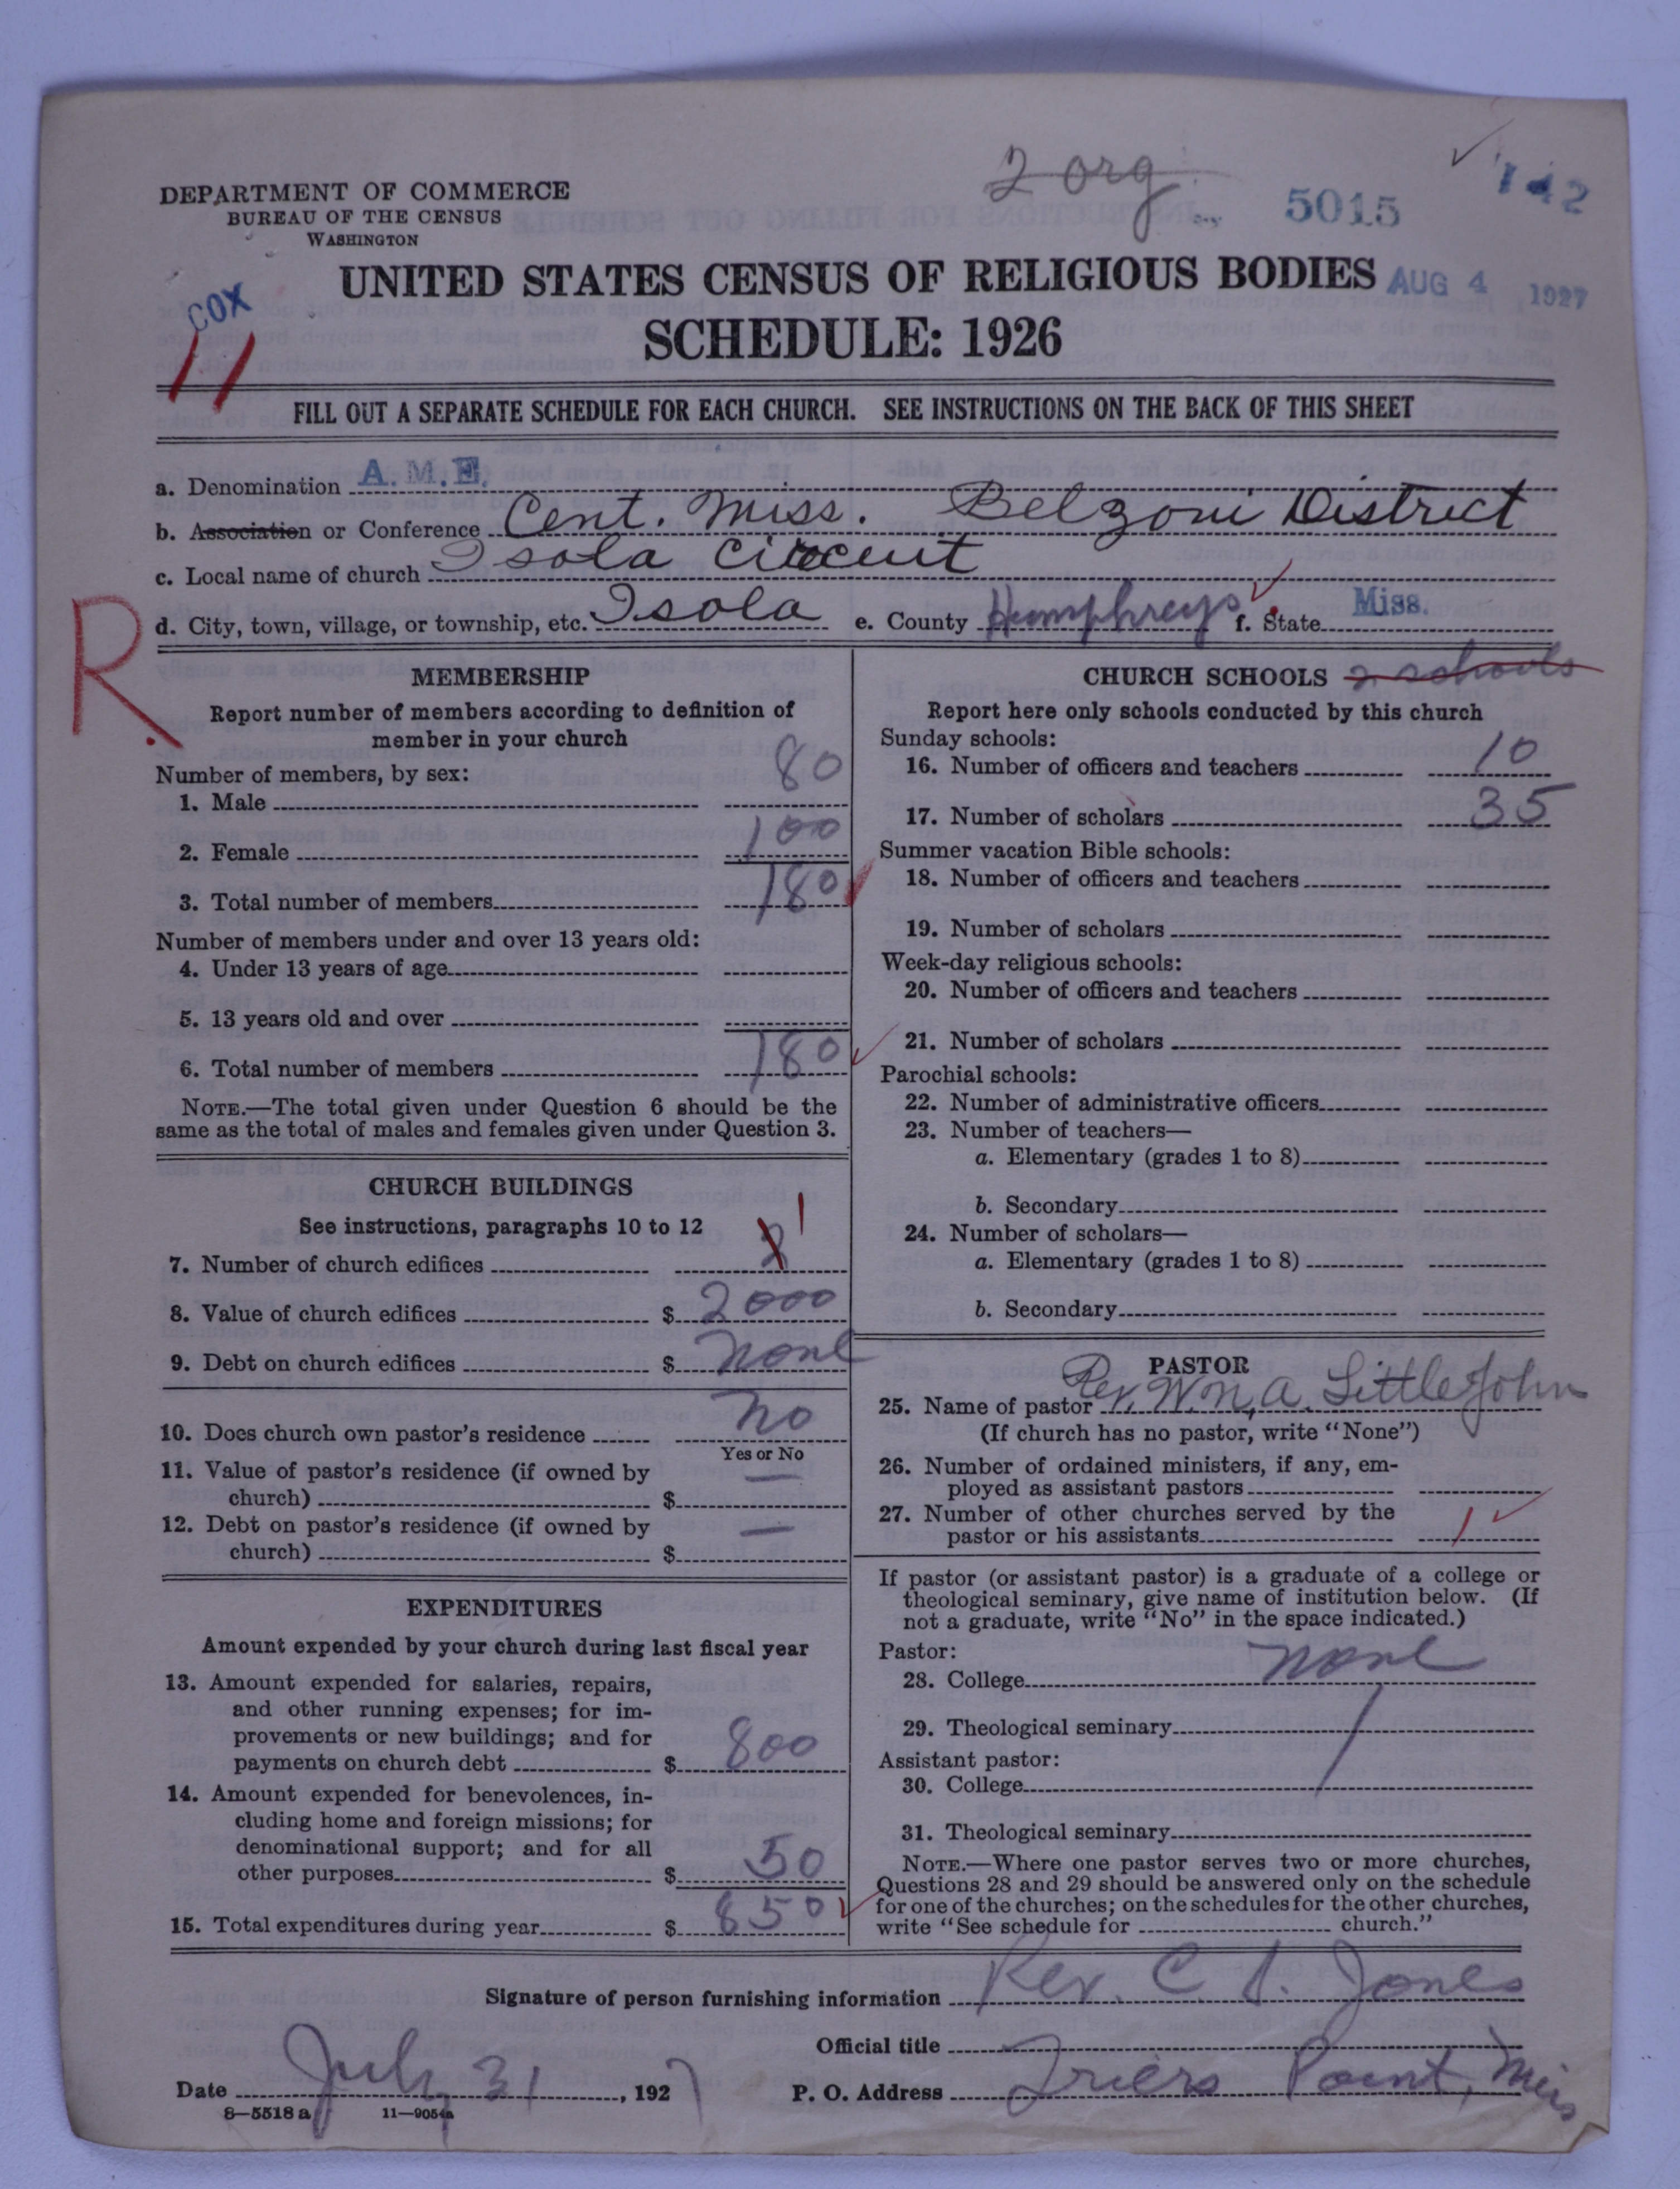 2 org.
142
5015
DEPARTMENT OF COMMERCE
BUREAU OF THE CENSUS
WASHINGTON
UNITED STATES CENSUS OF RELIGIOUS BODIES
AUG 4 1927
COX
11
SCHEDULE: 1926
FILL OUT A SEPARATE SCHEDULE FOR EACH CHURCH. SEE INSTRUCTIONS ON THE BACK OF THIS SHEET
a. Denomination A.M.E.
b. Association or Conference Cent. Miss. Belzoni District
c. Local name of church Isola Circuit
d. City, town, village, or township, etc. Isola e. County Humphreys f. State Miss.
R.
MEMBERSHIP
Report number of members according to definition of
member in your church
Number of members, by sex:
1. Male 80
2. Female 100
3. Total number of members 180
Number of members under and over 13 years old:
4. Under 13 years of age
5. 13 years old and over
6. Total number of members 180
NOTE.—The total given under Question 6 should be the
same as the total of males and females given under Question 3.
CHURCH BUILDINGS
See instructions, paragraphs 10 to 12
7. Number of church edifices 2 1
8. Value of church edifices $ 2000
9. Debt on church edifices $ none
10. Does church own pastor's residence no
Yes or No
11. Value of pastor's residence (if owned by
church) $ —
12. Debt on pastor's residence (if owned by
church) $ —
EXPENDITURES
Amount expended by your church during last fiscal year
13. Amount expended for salaries, repairs,
and other running expenses; for im-
provements or new buildings; and for
payments on church debt $ 800
14. Amount expended for benevolences, in-
cluding home and foreign missions; for
denominational support; and for all
other purposes $ 50
15. Total expenditures during year $ 850
CHURCH SCHOOLS 2 schools
Report here only schools conducted by this church
Sunday schools:
16. Number of officers and teachers 10
17. Number of scholars 35
Summer vacation Bible schools:
18. Number of officers and teachers
19. Number of scholars
Week-day religious schools:
20. Number of officers and teachers
21. Number of scholars
Parochial schools:
22. Number of administrative officers
23. Number of teachers—
a. Elementary (grades 1 to 8)
b. Secondary
24. Number of scholars—
a. Elementary (grades 1 to 8)
b. Secondary
PASTOR
25. Name of pastor Rev. W.m. A. LittleJohn
(If church has no pastor, write "None")
26. Number of ordained ministers, if any, em-
ployed as assistant pastors
27. Number of other churches served by the
pastor or his assistants 1
If pastor (or assistant pastor) is a graduate of a college or
theological seminary, give name of institution below. (If
not a graduate, write "No" in the space indicated.)
Pastor:
28. College none
29. Theological seminary
Assistant pastor:
30. College
31. Theological seminary
NOTE.—Where one pastor serves two or more churches,
Questions 28 and 29 should be answered only on the schedule
for one of the churches; on the schedules for the other churches,
write "See schedule for church."
Signature of person furnishing information Rev. C. S. Jones
Official title
Date July 31, 1927 P. O. Address Friers Point, Miss
8—5518 a 11—9054a